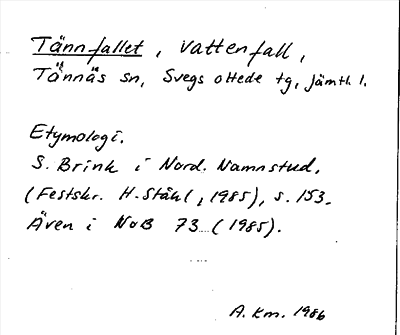 Tännfallet, vattenfall,
Tännäs sn, Svegs ottede tg, Jämtl l.
Etymologi.
S. Brink i Nord. Namnstud.
(Festskr. H. Ståhl, 1985), s. 153.
Även i NoB 73 (1985).
A. Km. 1986